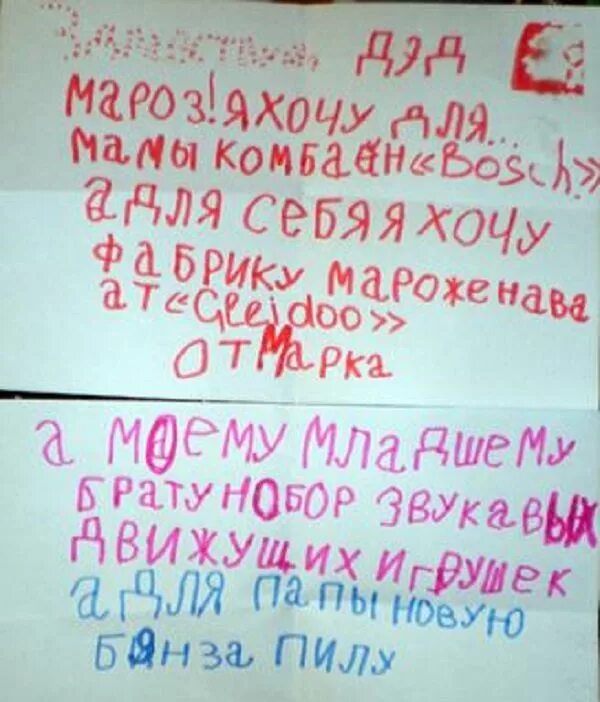 Здраствуй, дэд
мароз! я хочу для...
мамы комбаён «Bosch»
а для себя я хочу
фабрику мароженава
ат «Gleidoo»
от Марка
а моему младшему
брату нобор звукавых
движущих игрушек
а для папы новую
бянза пилу